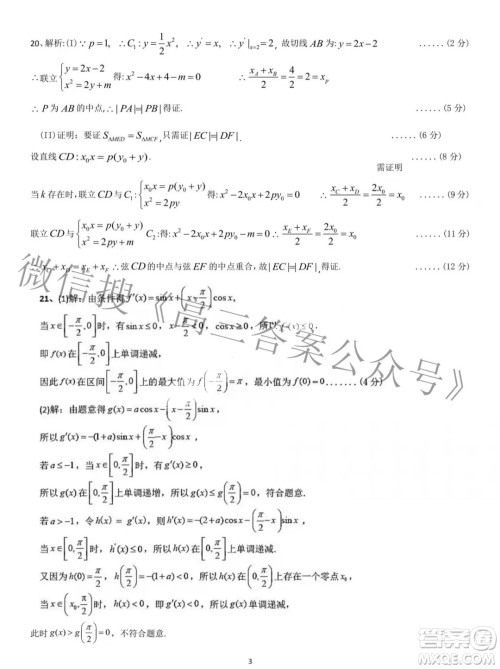 20、解析:(I)∵p=1, ∴C₁:y=½x², ∴y′=x, ∴y′|ₓ₌₂=2, 故切线 AB 为: y=2x-2 ......(2 分)
∴联立{y=2x-2, x²=2y+m 得: x²-4x+4-m=0 ∴(x_A+x_B)/2=4/2=2=x_P
∴P 为 AB 的中点,∴|PA|=|PB|得证. ......(5 分)
(II)证明：要证 S_ΔMED=S_ΔMCF, 只需证|EC|=|DF|. ......(6 分)
设直线 CD:x₀x=p(y₀+y). ......(8 分)
需证明
当 k 存在时, 联立{x₀x=p(y₀+y), x²=2py 得: x²-2x₀x+2py₀=0 ∴(x_C+x_D)/2=2x₀/2=x₀ ......(9 分)
联立 CD 与{x₀x=p(y₀+y), x²=2py+m C₂得: x²-2x₀x+2py₀-m=0, ∴(x_E+x_F)/2=2x₀/2=x₀ ......(11 分)
x_C+x_D=x_E+x_F, ∴弦 CD 的中点与弦 EF 的中点重合, 故|EC|=|DF|得证. ......(12 分)
21、(1)解：由条件得 f′(x)=sinx+(x+π/2)cosx,
当 x∈[-π/2,0]时, 有sinx≤0, cosx≥0, 所以 f′(x)≤0,
即 f(x)在[-π/2,0]上单调递减,
因此 f(x)在区间[-π/2,0]上的最大值为 , 最小值为 ......(4 分)
(2)解：由题意得 g(x)=acosx-(x-π/2)sinx,
所以 g′(x)=-(1+a)sinx-(x-π/2)cosx,
若 a≤-1, 当 x∈[0,π/2]时, g′(x)≥0,
所以 g(x)在[0,π/2]上单调递增, 所以 g(x)≤g(π/2)=0, 符合合题意.
若 a>-1, 令 h(x)=g′(x), h′(x)=-(2+a)cosx+(x-π/2)sinx,
当 x∈[0,π/2]时, h′(x)≤0, 所以h(x)在[0,π/2]上单调递减,
又因为 h(0)=π/2>0, h(π/2)=-(1+a)<0, 所以 h(x)在[0,π/2]上存在唯一零点 x₀,
当 x∈(x₀,π/2)时, h(x)=g′(x)<0, 所以 g(x)在(x₀,π/2)上单调递减,
此时 g(x)>g(π/2)=0, 不符合题意.
3
微信搜《高三答案公众号》